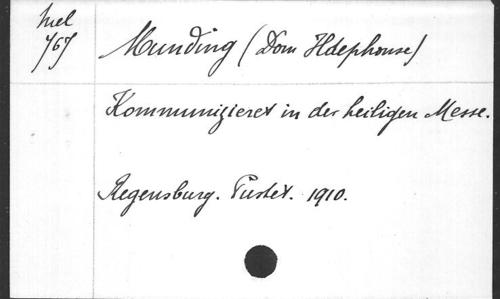 Mel
767
Munding (Dom Ildephonse)
Kommunizieret in der heiligen Messe.
Regensburg. Pustet. 1910.